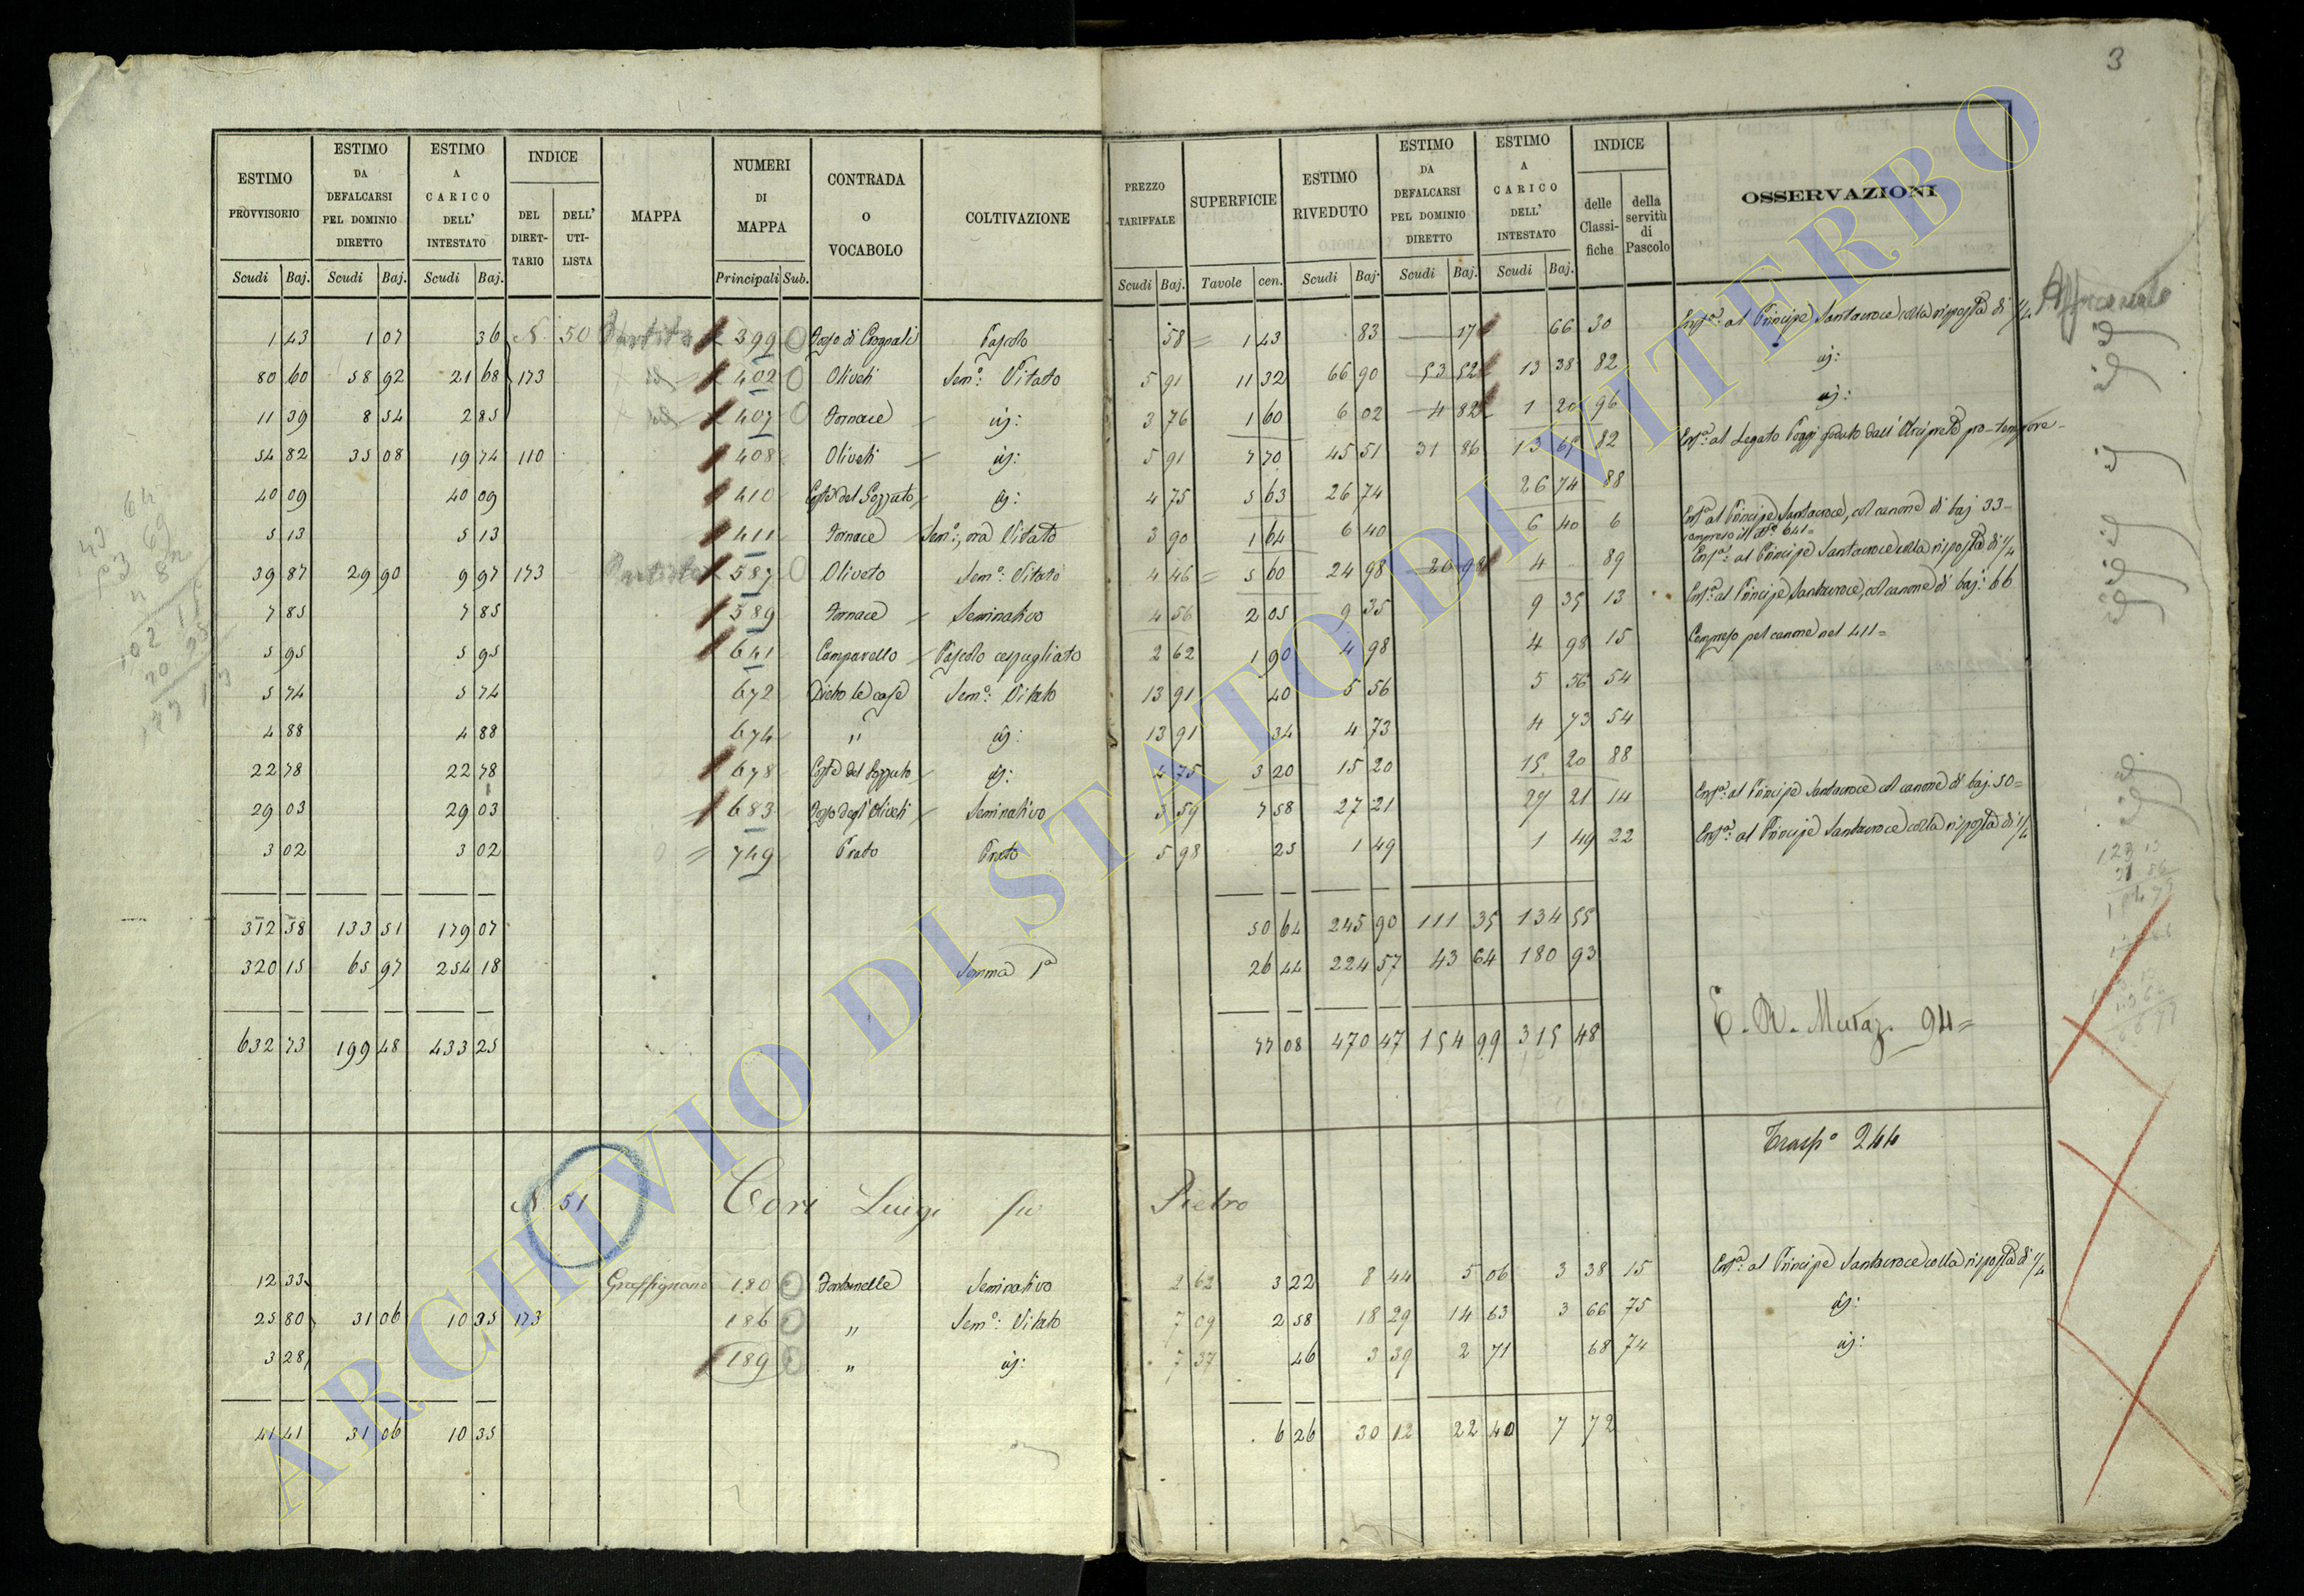 3
ESTIMO PROVVISORIO | ESTIMO DA DEFALCARSI PEL DOMINIO DIRETTO | ESTIMO A CARICO DELL' INTESTATO | INDICE DEL DIRET-TARIO | DELL' UTI-LISTA | MAPPA | NUMERI DI MAPPA | CONTRADA O VOCABOLO | COLTIVAZIONE | PREZZO TARIFFALE | SUPERFICIE | ESTIMO RIVEDUTO | ESTIMO DA DEFALCARSI PEL DOMINIO DIRETTO | ESTIMO A CARICO DELL' INTESTATO | INDICE delle Classi-fiche | della servitù di Pascolo | OSSERVAZIONI
Scudi Baj. | Scudi Baj. | Scudi Baj. | Principali Sub. | Scudi Baj. | Tavole cen. | Scudi Baj. | Scudi Baj. | Scudi Baj.
1 43 | 1 07 | 36 | N. 50 | 399 | Pascolo | 58 | 1 43 | 83 | 17 | 66 | 30 | Enfa: al Principe Santacroce colla risposta di 1/4
80 60 | 58 92 | 21 68 | 173 | 402 | Oliveti | Semo: Vitato | 5 91 | 11 32 | 66 90 | 53 52 | 13 38 | 82 | id:
11 39 | 8 54 | 2 85 | 407 | Fornace | id: | 3 76 | 1 60 | 6 02 | 4 82 | 1 20 | 96 | id:
54 82 | 35 08 | 19 74 | 110 | 408 | Oliveti | id: | 5 91 | 7 70 | 45 51 | 31 86 | 13 65 | 82 | Enfa: al Legato Poggi goduto dall'Arciprete pro-tempore
40 09 | 40 09 | 410 | Coste del Pozzato | id: | 4 75 | 5 63 | 26 74 | 26 74 | 88
5 13 | 5 13 | 411 | Fornace | Semo:, ora Vitato | 3 90 | 1 64 | 6 40 | 6 40 | 6 | Enfa: al Principe Santacroce, col canone di baj 33 compreso il No 641
39 87 | 29 90 | 9 97 | 173 | 587 | Oliveto | Semo: Vitato | 4 46 | 5 60 | 24 98 | 20 98 | 4 | 89 | Enfa: al Principe Santacroce colla risposta di 1/4
7 85 | 7 85 | 589 | Fornace | Seminativo | 4 56 | 2 05 | 9 35 | 9 35 | 13 | Enfa: al Principe Santacroce, col canone di baj: 66
5 95 | 5 95 | 641 | Campanello | Pascolo cespugliato | 2 62 | 1 90 | 4 98 | 4 98 | 15 | Compreso pel canone nel 411=
5 74 | 5 74 | 672 | Dietro le case | Semo: Vitato | 13 91 | 40 | 5 56 | 5 56 | 54
4 88 | 4 88 | 674 | " | id: | 13 91 | 34 | 4 73 | 4 73 | 54
22 78 | 22 78 | 678 | Coste del Pozzato | id: | 4 75 | 3 20 | 15 20 | 15 20 | 88
29 03 | 29 03 | 683 | Seminativo | 3 59 | 7 58 | 27 21 | 27 21 | 14 | Enfa: al Principe Santacroce col canone di baj. 50=
3 02 | 3 02 | 749 | Prato | Prato | 5 98 | 25 | 1 49 | 1 49 | 22 | Enfa: al Principe Santacroce colla risposta di 1/4
312 58 | 133 51 | 179 07 | 50 64 | 245 90 | 111 35 | 134 55
320 15 | 65 97 | 254 18 | Somma Pa | 26 44 | 224 57 | 43 64 | 180 93
632 73 | 199 48 | 433 25 | 77 08 | 470 47 | 154 99 | 315 48 | E. R. Mutaz. 94=
Traspo 244
N. 51 Cori Luigi fu Pietro
12 33 | Graffignano | 180 | Fontanelle | Seminativo | 2 62 | 3 22 | 8 44 | 5 06 | 3 38 | 15 | Enfa: al Principe Santacroce colla risposta di 1/4
25 80 | 31 06 | 10 35 | 173 | 186 | " | Semo: Vitato | 7 09 | 2 58 | 18 29 | 14 63 | 3 66 | 75 | id:
3 28 | 189 | " | id: | 7 37 | 46 | 3 39 | 2 71 | 68 | 74 | id:
41 41 | 31 06 | 10 35 | 6 26 | 30 12 | 22 40 | 7 72
ARCHIVIO DI STATO DI VITERBO